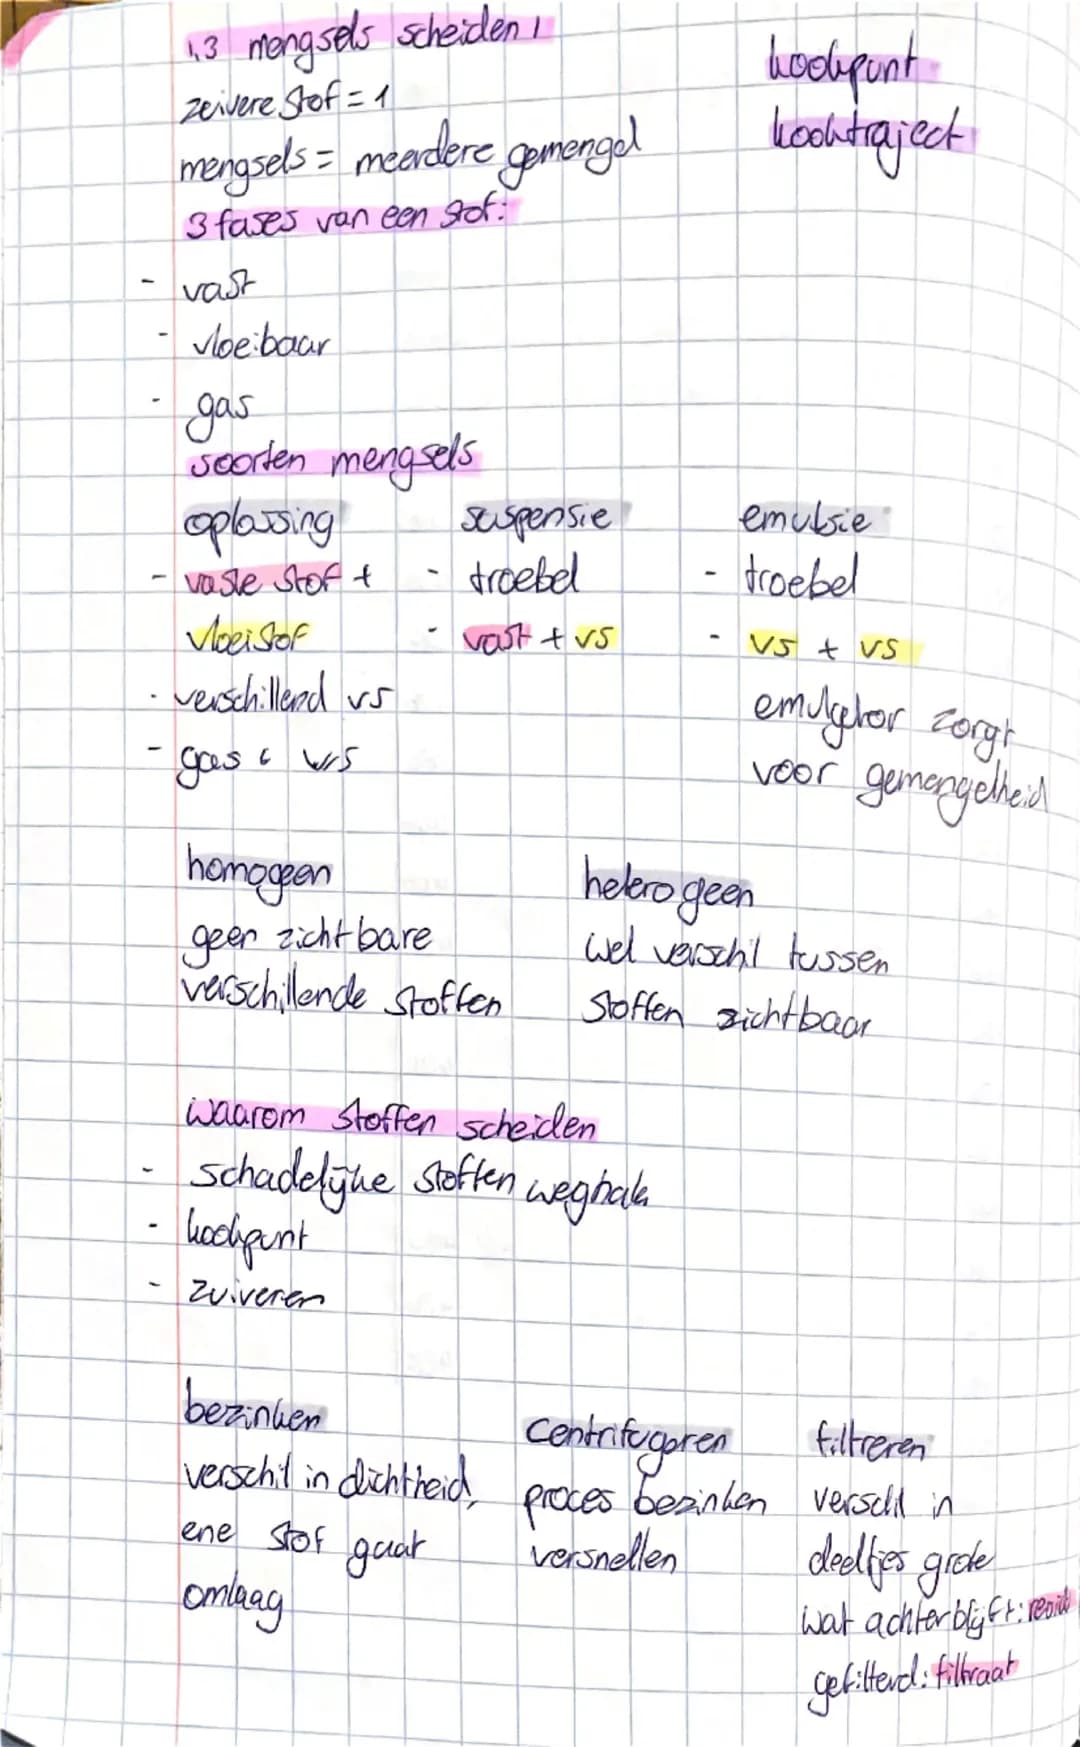 1,3 mengsels scheiden 1
kookpunt
kooktraject
zeivere stof = 1
mengsels = meerdere gemengd
3 fases van een stof:
- vast
- vloeibaar
- gas
soorten mengsels
oplossing
- vaste stof +
vloeistof
- verschillend vs
- gas & vs
suspensie
- troebel
- vast + vs
emulsie
- troebel
- vs + vs
emulgator zorgt
voor gemengelheid
homogeen
geen zichtbare
verschillende stoffen
heterogeen
wel verschil tussen
stoffen zichtbaar
waarom stoffen scheiden
- schadelijke stoffen weghalen
- kookpunt
- zuiveren
bezinken
verschil in dichtheid,
ene stof gaat
omlaag
centrifugeren
proces bezinken
versnellen
filtreren
verschil in
deeltjes grote
wat achterblijft: residu
gefilterd: filtraat